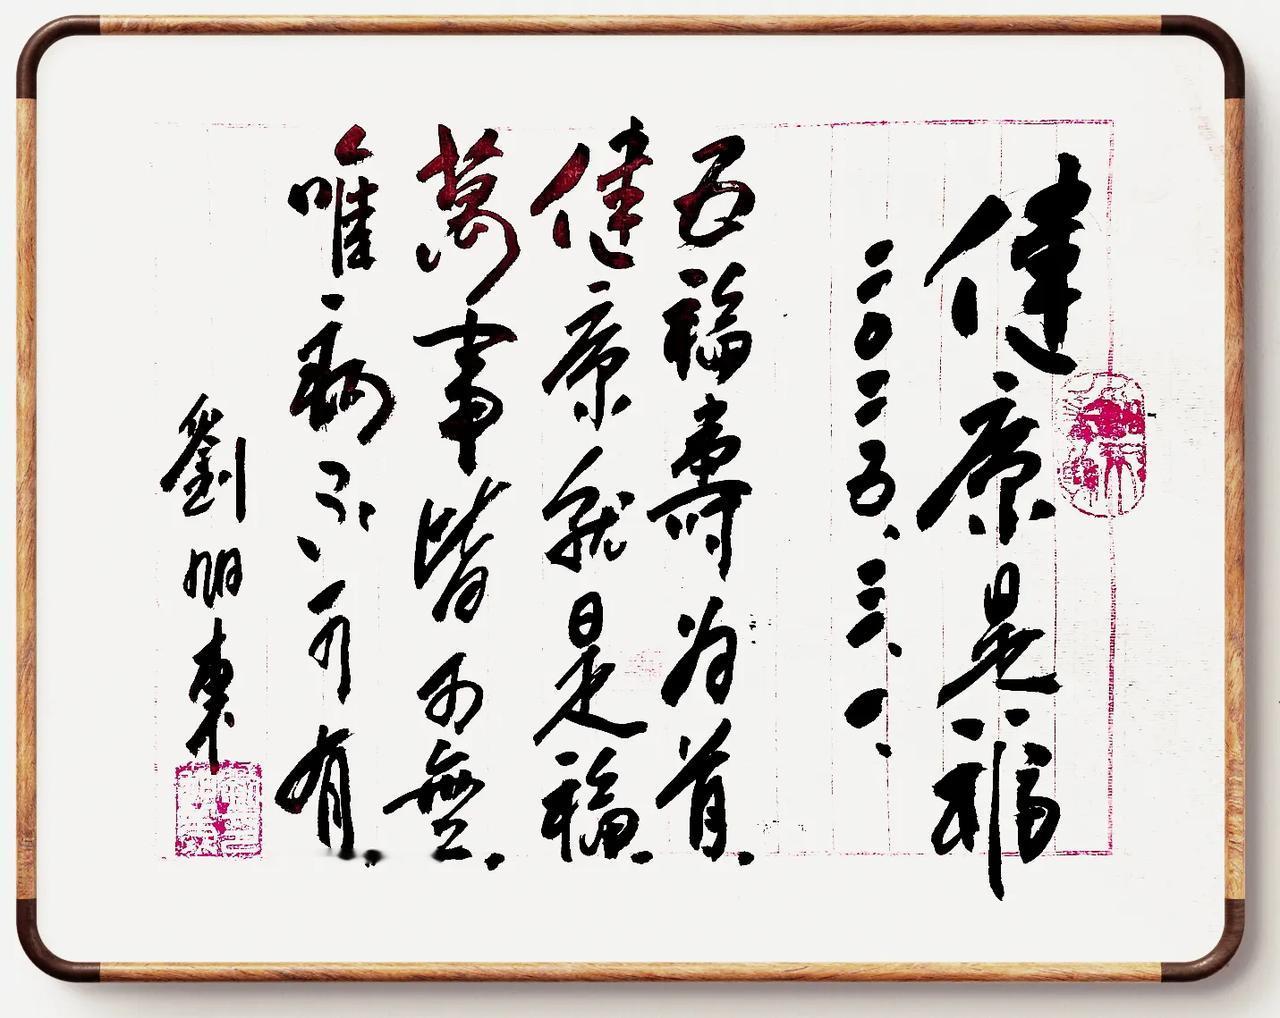 健康是福
二0二五.三.
五福壽为首.
健康就是福.
萬事皆可無.
唯病不可有.
劉朋東